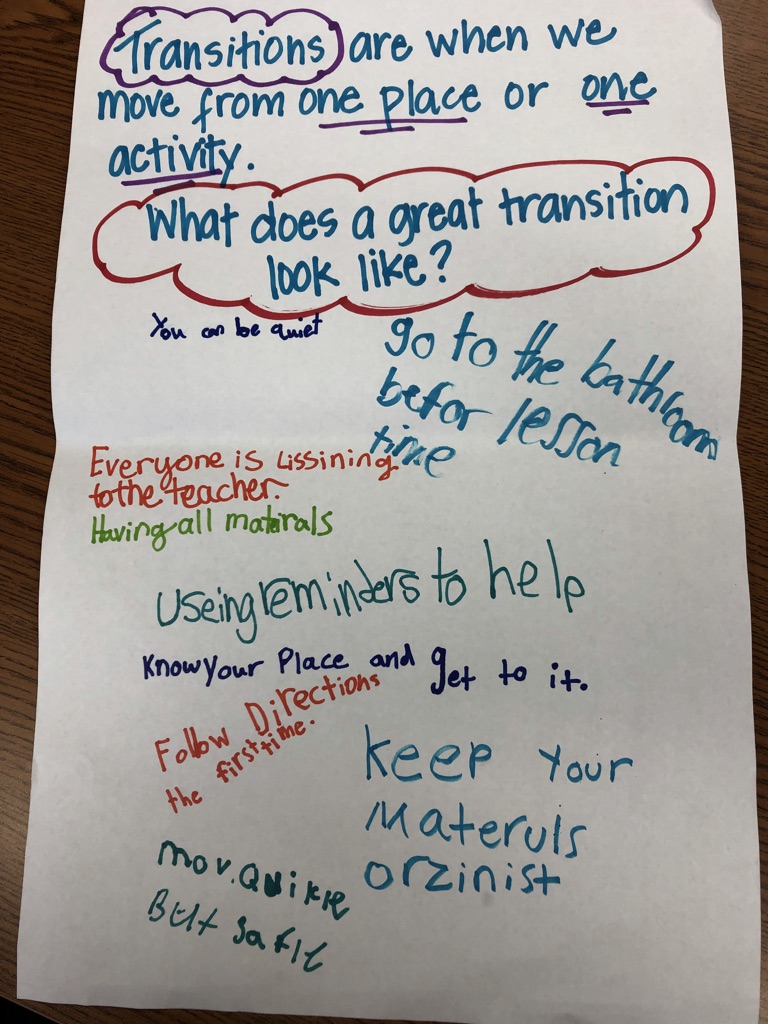 Transitions are when we
move from one place or one
activity.
What does a great transition
look like?
You can be quiet
go to the bathroom
befor lesson
time
Everyone is Lissining
to the teacher.
Having all materals
Useing reminders to help
Know your Place and get to it.
Follow Directions
the first time.
Keep Your
Materuls
orzinist
mov. Quikle
But Safle